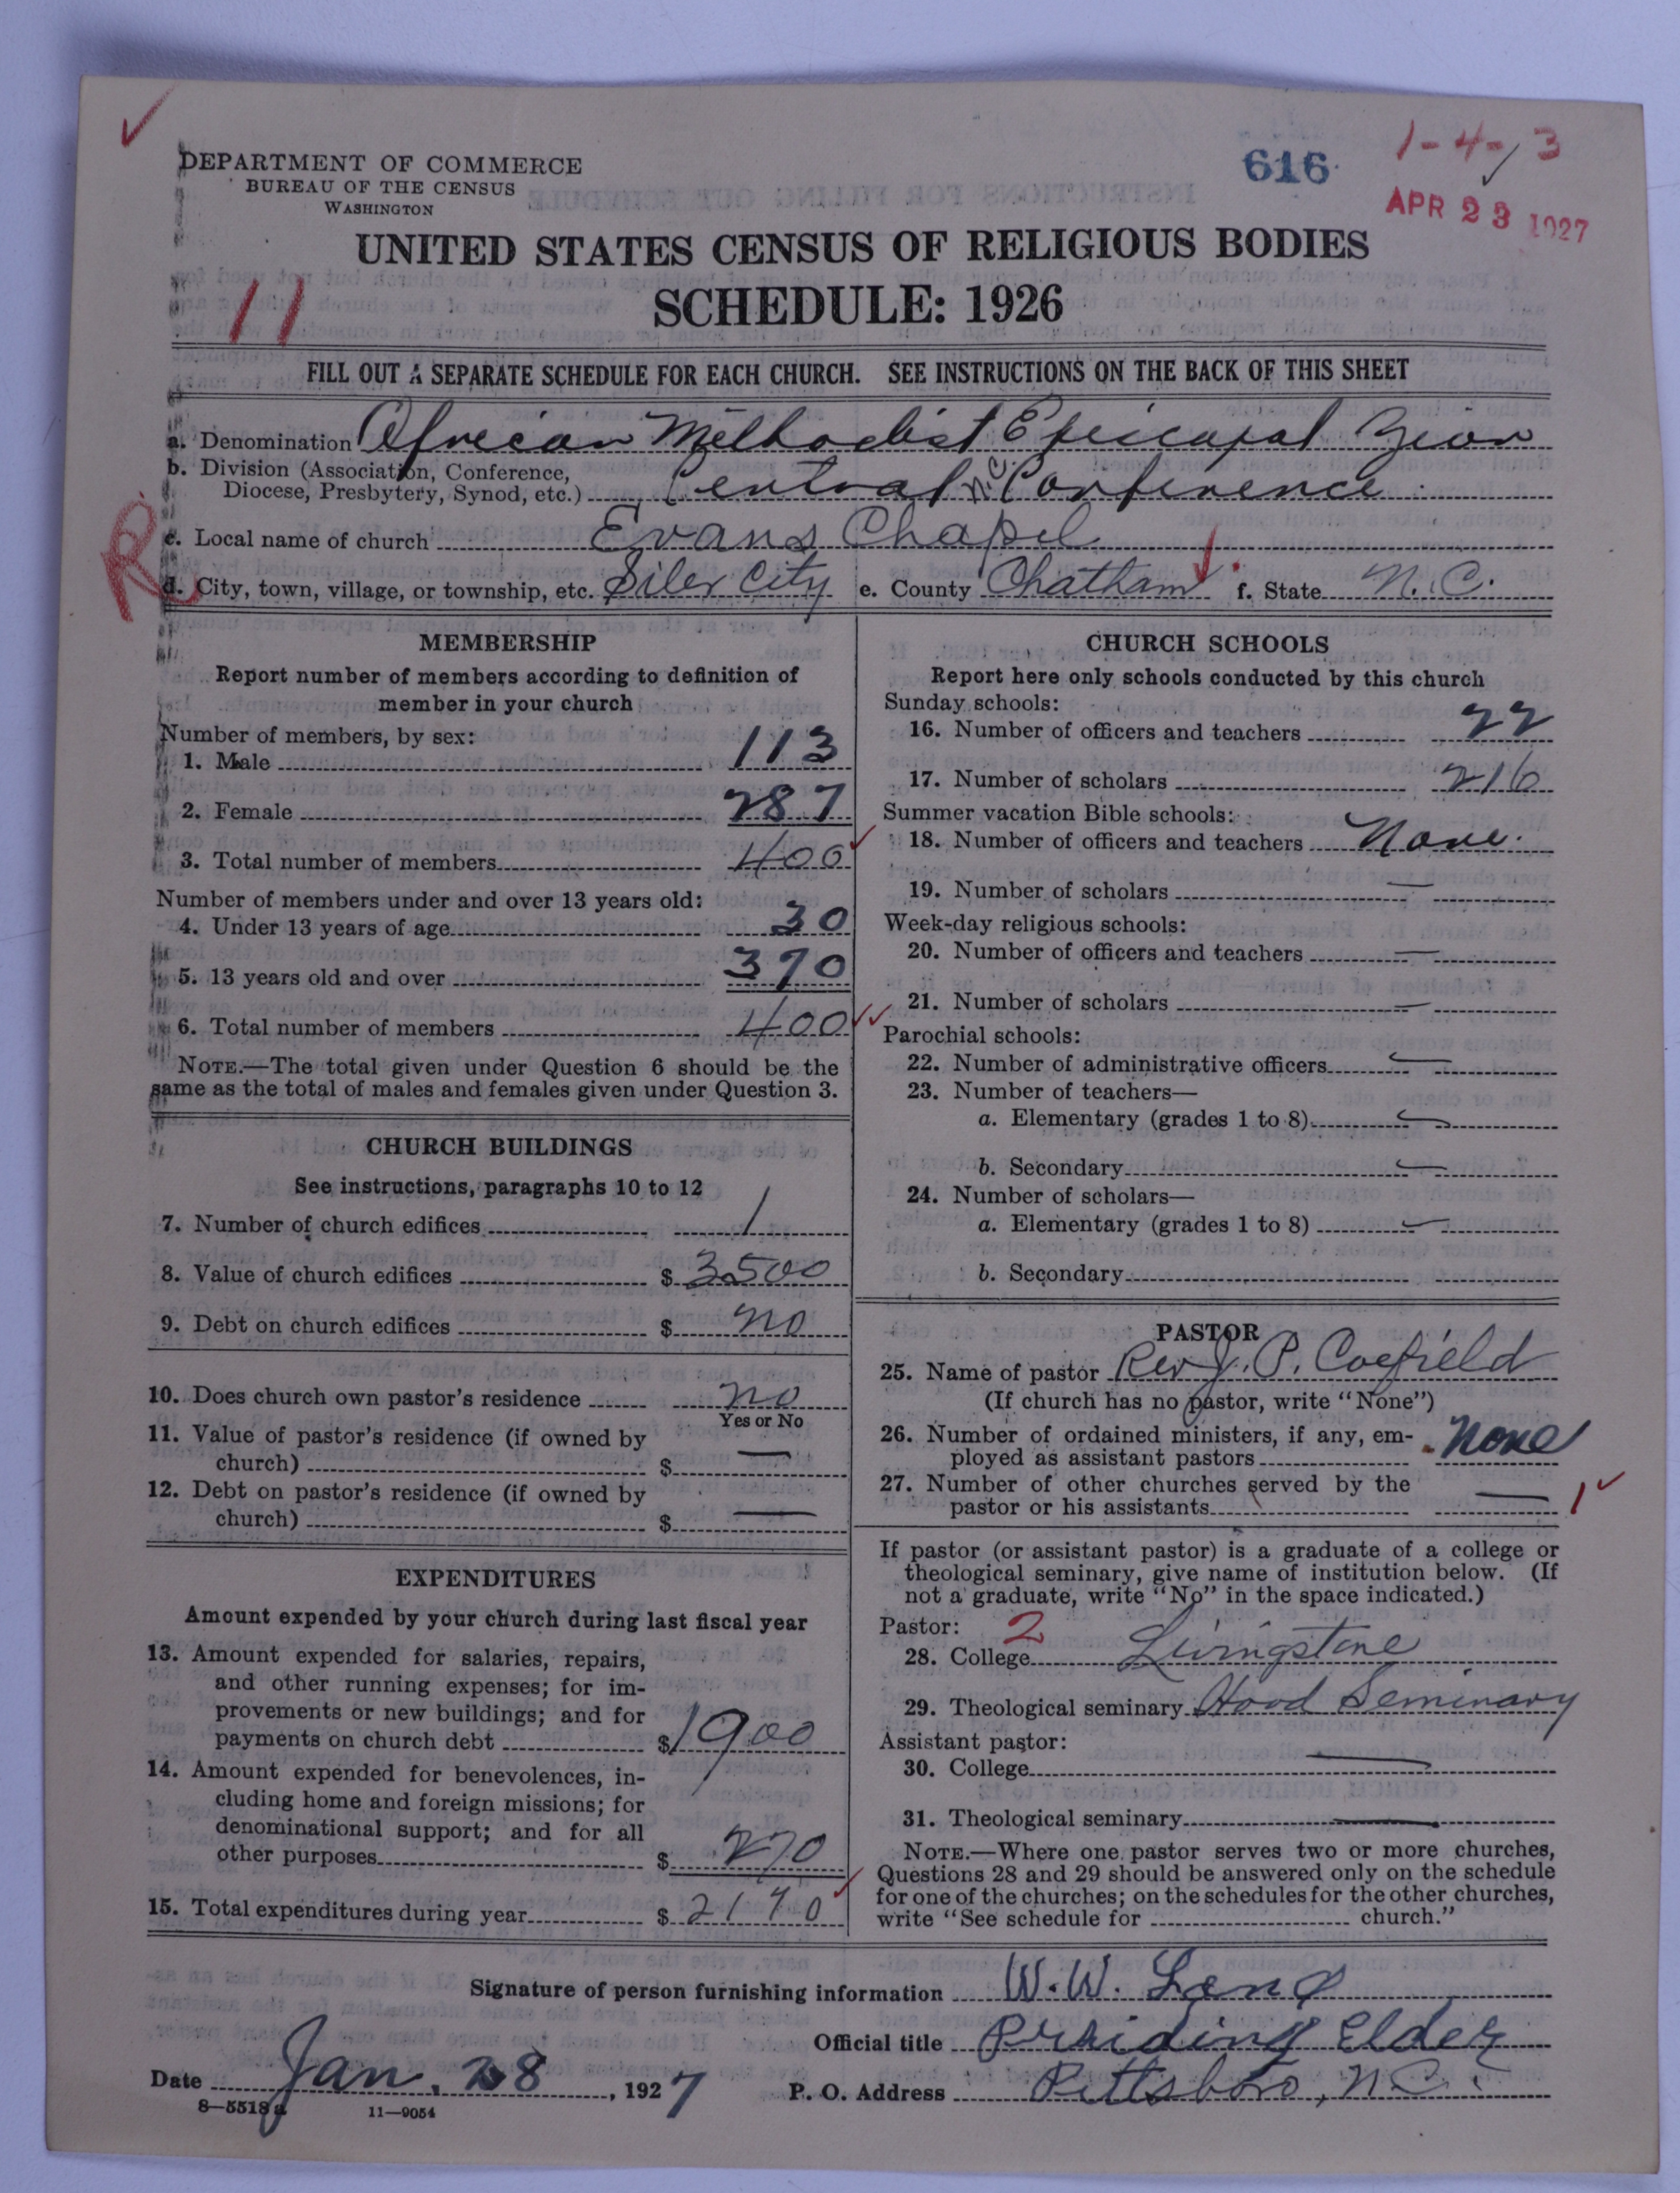 1-4-3
616
APR 23 1927
DEPARTMENT OF COMMERCE
BUREAU OF THE CENSUS
WASHINGTON
UNITED STATES CENSUS OF RELIGIOUS BODIES
SCHEDULE: 1926
11
FILL OUT A SEPARATE SCHEDULE FOR EACH CHURCH. SEE INSTRUCTIONS ON THE BACK OF THIS SHEET
a. Denomination African Methodist Episcopal Zion
b. Division (Association, Conference,
Diocese, Presbytery, Synod, etc.) Central N.C. Conference
R
c. Local name of church Evans Chapel
d. City, town, village, or township, etc. Siler City e. County Chatham f. State N.C.
MEMBERSHIP
Report number of members according to definition of
member in your church
Number of members, by sex:
1. Male 113
2. Female 287
3. Total number of members 400
Number of members under and over 13 years old:
4. Under 13 years of age 30
5. 13 years old and over 370
6. Total number of members 400
NOTE.—The total given under Question 6 should be the
same as the total of males and females given under Question 3.
CHURCH BUILDINGS
See instructions, paragraphs 10 to 12
7. Number of church edifices 1
8. Value of church edifices $ 3500
9. Debt on church edifices $ no
10. Does church own pastor's residence no
Yes or No
11. Value of pastor's residence (if owned by
church) $ —
12. Debt on pastor's residence (if owned by
church) $ —
EXPENDITURES
Amount expended by your church during last fiscal year
13. Amount expended for salaries, repairs,
and other running expenses; for im-
provements or new buildings; and for
payments on church debt $ 1900
14. Amount expended for benevolences, in-
cluding home and foreign missions; for
denominational support; and for all
other purposes $ 270
15. Total expenditures during year $ 2170
CHURCH SCHOOLS
Report here only schools conducted by this church
Sunday schools:
16. Number of officers and teachers 22
17. Number of scholars 216
Summer vacation Bible schools:
18. Number of officers and teachers None.
19. Number of scholars —
Week-day religious schools:
20. Number of officers and teachers —
21. Number of scholars —
Parochial schools:
22. Number of administrative officers —
23. Number of teachers—
a. Elementary (grades 1 to 8) —
b. Secondary —
24. Number of scholars—
a. Elementary (grades 1 to 8) —
b. Secondary
PASTOR
25. Name of pastor Rev J. P. Coefield
(If church has no pastor, write "None")
26. Number of ordained ministers, if any, em-
ployed as assistant pastors None
27. Number of other churches served by the
pastor or his assistants — 1
If pastor (or assistant pastor) is a graduate of a college or
theological seminary, give name of institution below. (If
not a graduate, write "No" in the space indicated.)
Pastor: 2
28. College Livingstone
29. Theological seminary Hood Seminary
Assistant pastor:
30. College —
31. Theological seminary —
NOTE.—Where one pastor serves two or more churches,
Questions 28 and 29 should be answered only on the schedule
for one of the churches; on the schedules for the other churches,
write "See schedule for church."
Signature of person furnishing information W. W. Long
Official title Presiding Elder
Date Jan. 28, 1927 P. O. Address Pittsboro, N.C.
8—5518 a 11—9054